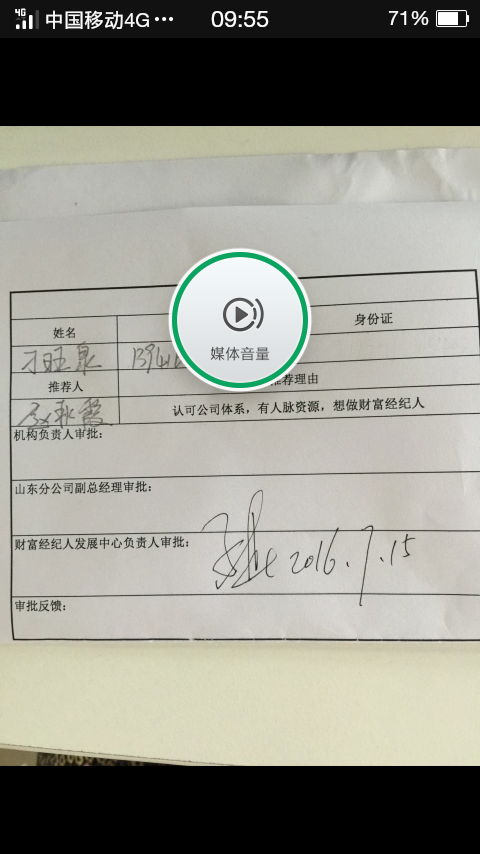 4G 中国移动4G ••• 09:55 71%
姓名 身份证
推荐人 推荐理由
认可公司体系，有人脉资源，想做财富经纪人
媒体音量
机构负责人审批：
山东分公司副总经理审批：
财富经纪人发展中心负责人审批：
2016.7.15
审批反馈：